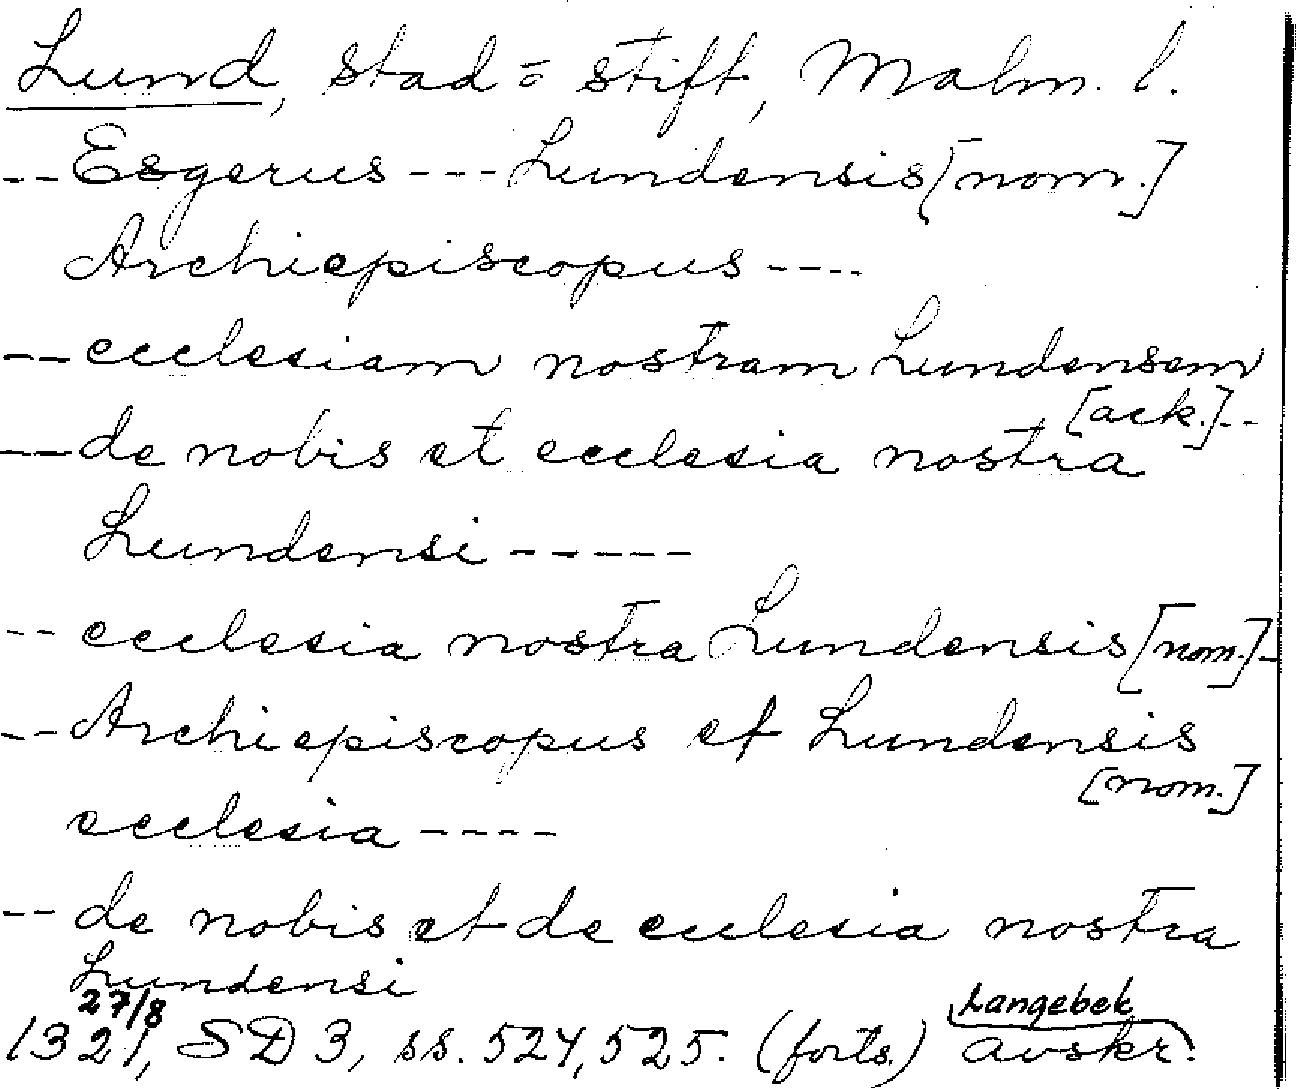 Lund, stad o stift, Malm. l.
-- Esgerus --- Lundensis [nom.]
Archiepiscopus ----
-- ecclesiam nostram Lundensem
[ack.]--
-- de nobis et ecclesia nostra
Lundensi -----
-- ecclesia nostra Lundensis [nom.]-
-- Archiepiscopus et Lundensis
[nom.]
ecclesia ----
-- de nobis et de ecclesia nostra
Lundensi
27/8 Langebek
1321, SD 3, ss. 524, 525. (forts.) avskr.